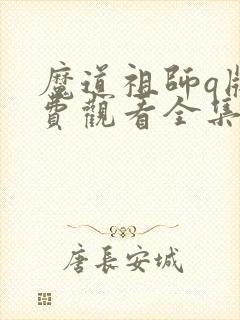 魔道祖師q版
費觀看全集
唐長安城